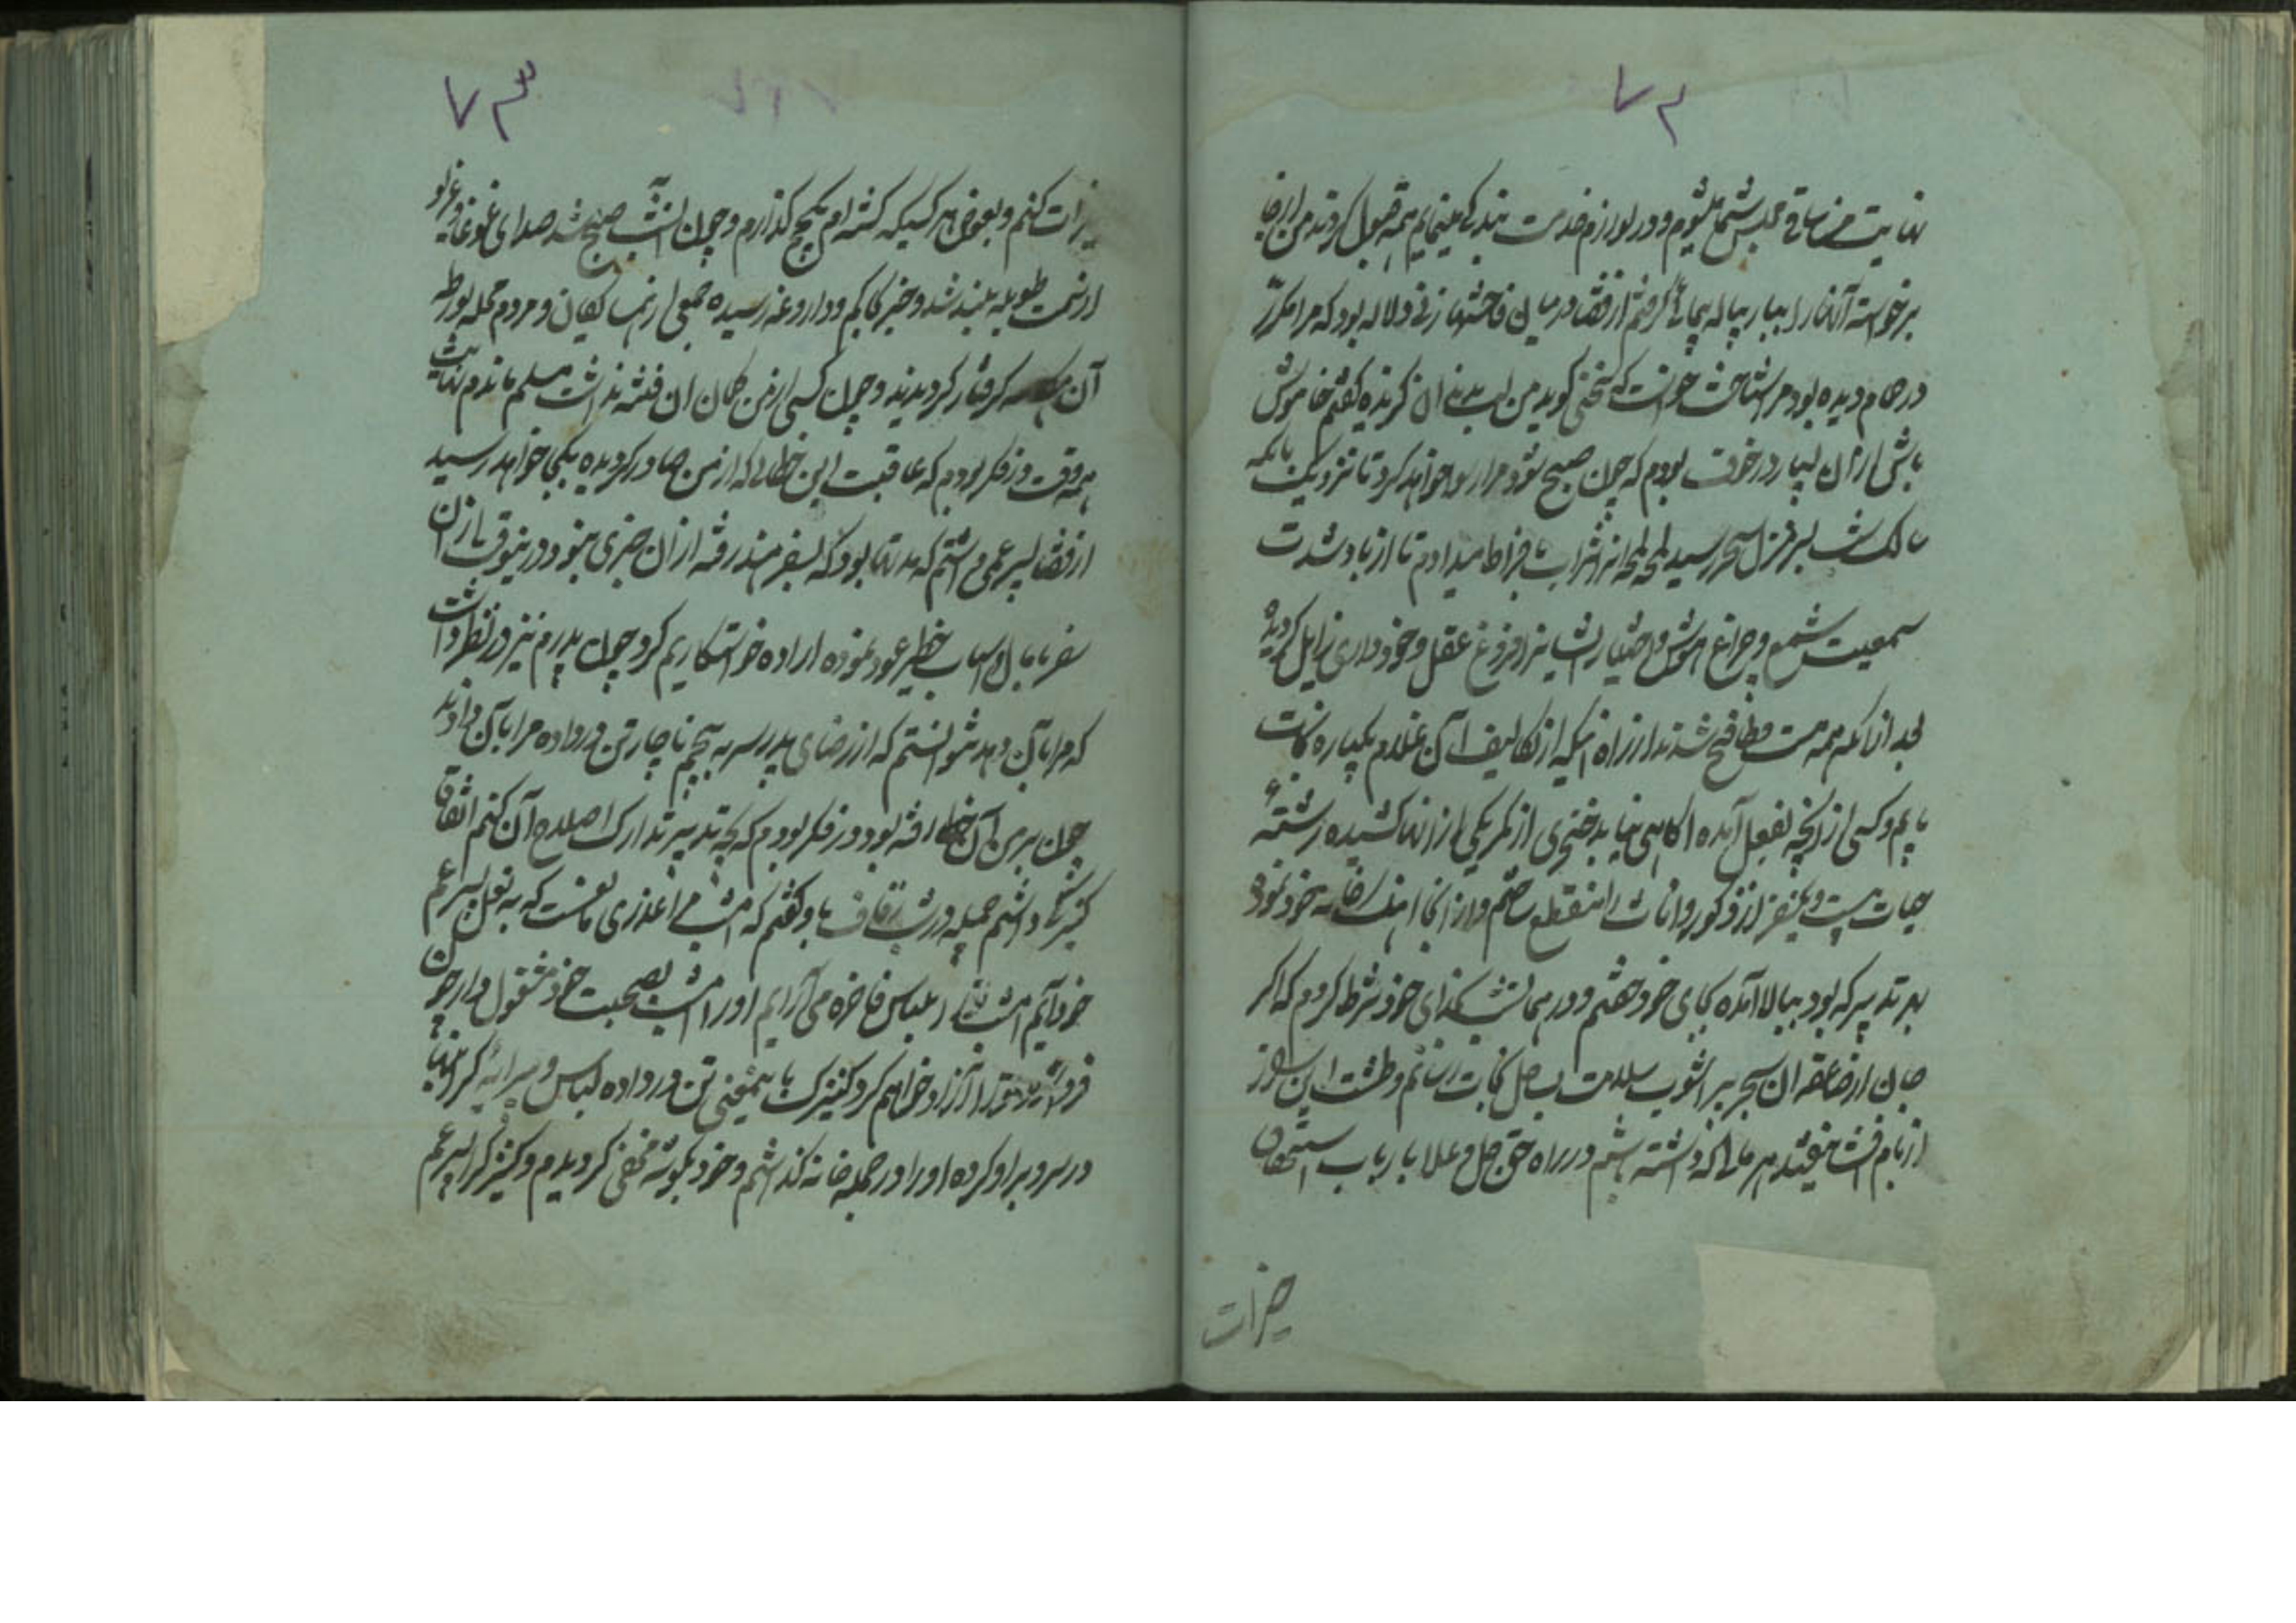 ۷۲
نهایت من ساقی مجلس شما میشوم و در لوازم خدمت بندگی مینمایم همه قبول کردند من از جا
برخواسته آغاز بسیار پیاله پیمائی گرفتم از قضا در میان فاحشها زنی دلاله بود که مرا مکرر
در حمام دیده بود مرا شناخت خواست که سخنی گوید من لب بدندان گزیده گفتم خاموش
باش از آن بسیار در خوف بودم که چون صبح شود مرا رسوا خواهد کرد تا نزدیک بانکه
سالک شب بسر منزل سحر رسید لمحه لمحه از شراب بافراط میدادم تا از باد شدت
سمعیت شمع و چراغ هوش و اختیار ایشان را و فروغ عقل و خودداری زایل گردیده
بعد از آنکه همه مست طافح شدند از راه اینکه از تکالیف آن غلام یکباره نجات
یابم و کسی از آنچه بفعل آمده اگاهی نیابد خنجری از کمر یکی از آنها کشیده رشتهٔ
حیات بیست و یکنفر از ذکور و اناث را منقطع ساختم و از آنجا اهنک خانه خود نموده
بهر تدبیر که بود ببالا آمده بجای خود خفتم و در همانشب بخدای خود شرط کردم که اگر
جان از صاعقه ان بحر پر اشوب سلامت بساحل نجات رسانم و طشت این راز
از بام افشا نیفتد هر مالی که داشته باشم در راه حق جل و علا بارباب استحقاق
خیرات
۷۳
خیرات کنم و بعوض هر کسیکه کشته‌ام یکحج گذارم و چون انشب صبح شد صدای غوغا و غریو
از سمت طویله بلند شد و خبر بحاکم و داروغه رسیده جمعی از همسایکان و مردم محله بورطه
آن گرفتار گردیدند و چون کسی از من گمان ان فتنه نداشت مسلم ماندم نهایت
همه وقت در فکر بودم که عاقبت این خطائی که از من صادر گردیده بکجا خواهد رسید
از قضا پسر عمی داشتم که مدتها بود که بسفر هند رفته از ان خبری نبود در ینوقت از ان
سفر با مال و اسباب خطیر عود نموده اراده خواستکاریم کرد چون پدرم نیز در نظر داشت
که مرا بآن دهد نتوانستم که از رضای پدر سر به پیچم ناچار تن در داده مرا بآن دادند
چون بر من آن خطا رفته بود در فکر بودم که بچه تدبیر تدارک اصلاح آن کنم اتفاقا
کنیزکی داشتم جمیله در شب زفاف باو گفتم که امشب مرا عذری مانعست که به بغل پسر عم
خود آیم امشب ترا بلباس فاخره می آرایم او را امشب بصحبت خود مشغول دار چون
فردا شود ترا آزاد خواهم کرد کنیزک باینمعنی تن در داده لباس و پیرایهٔ گرانبها
در سر و بر او کرده او را در حجله خانه گذاشتم و خود بگوشه مخفی گردیدم و کنیزک را پسر عم